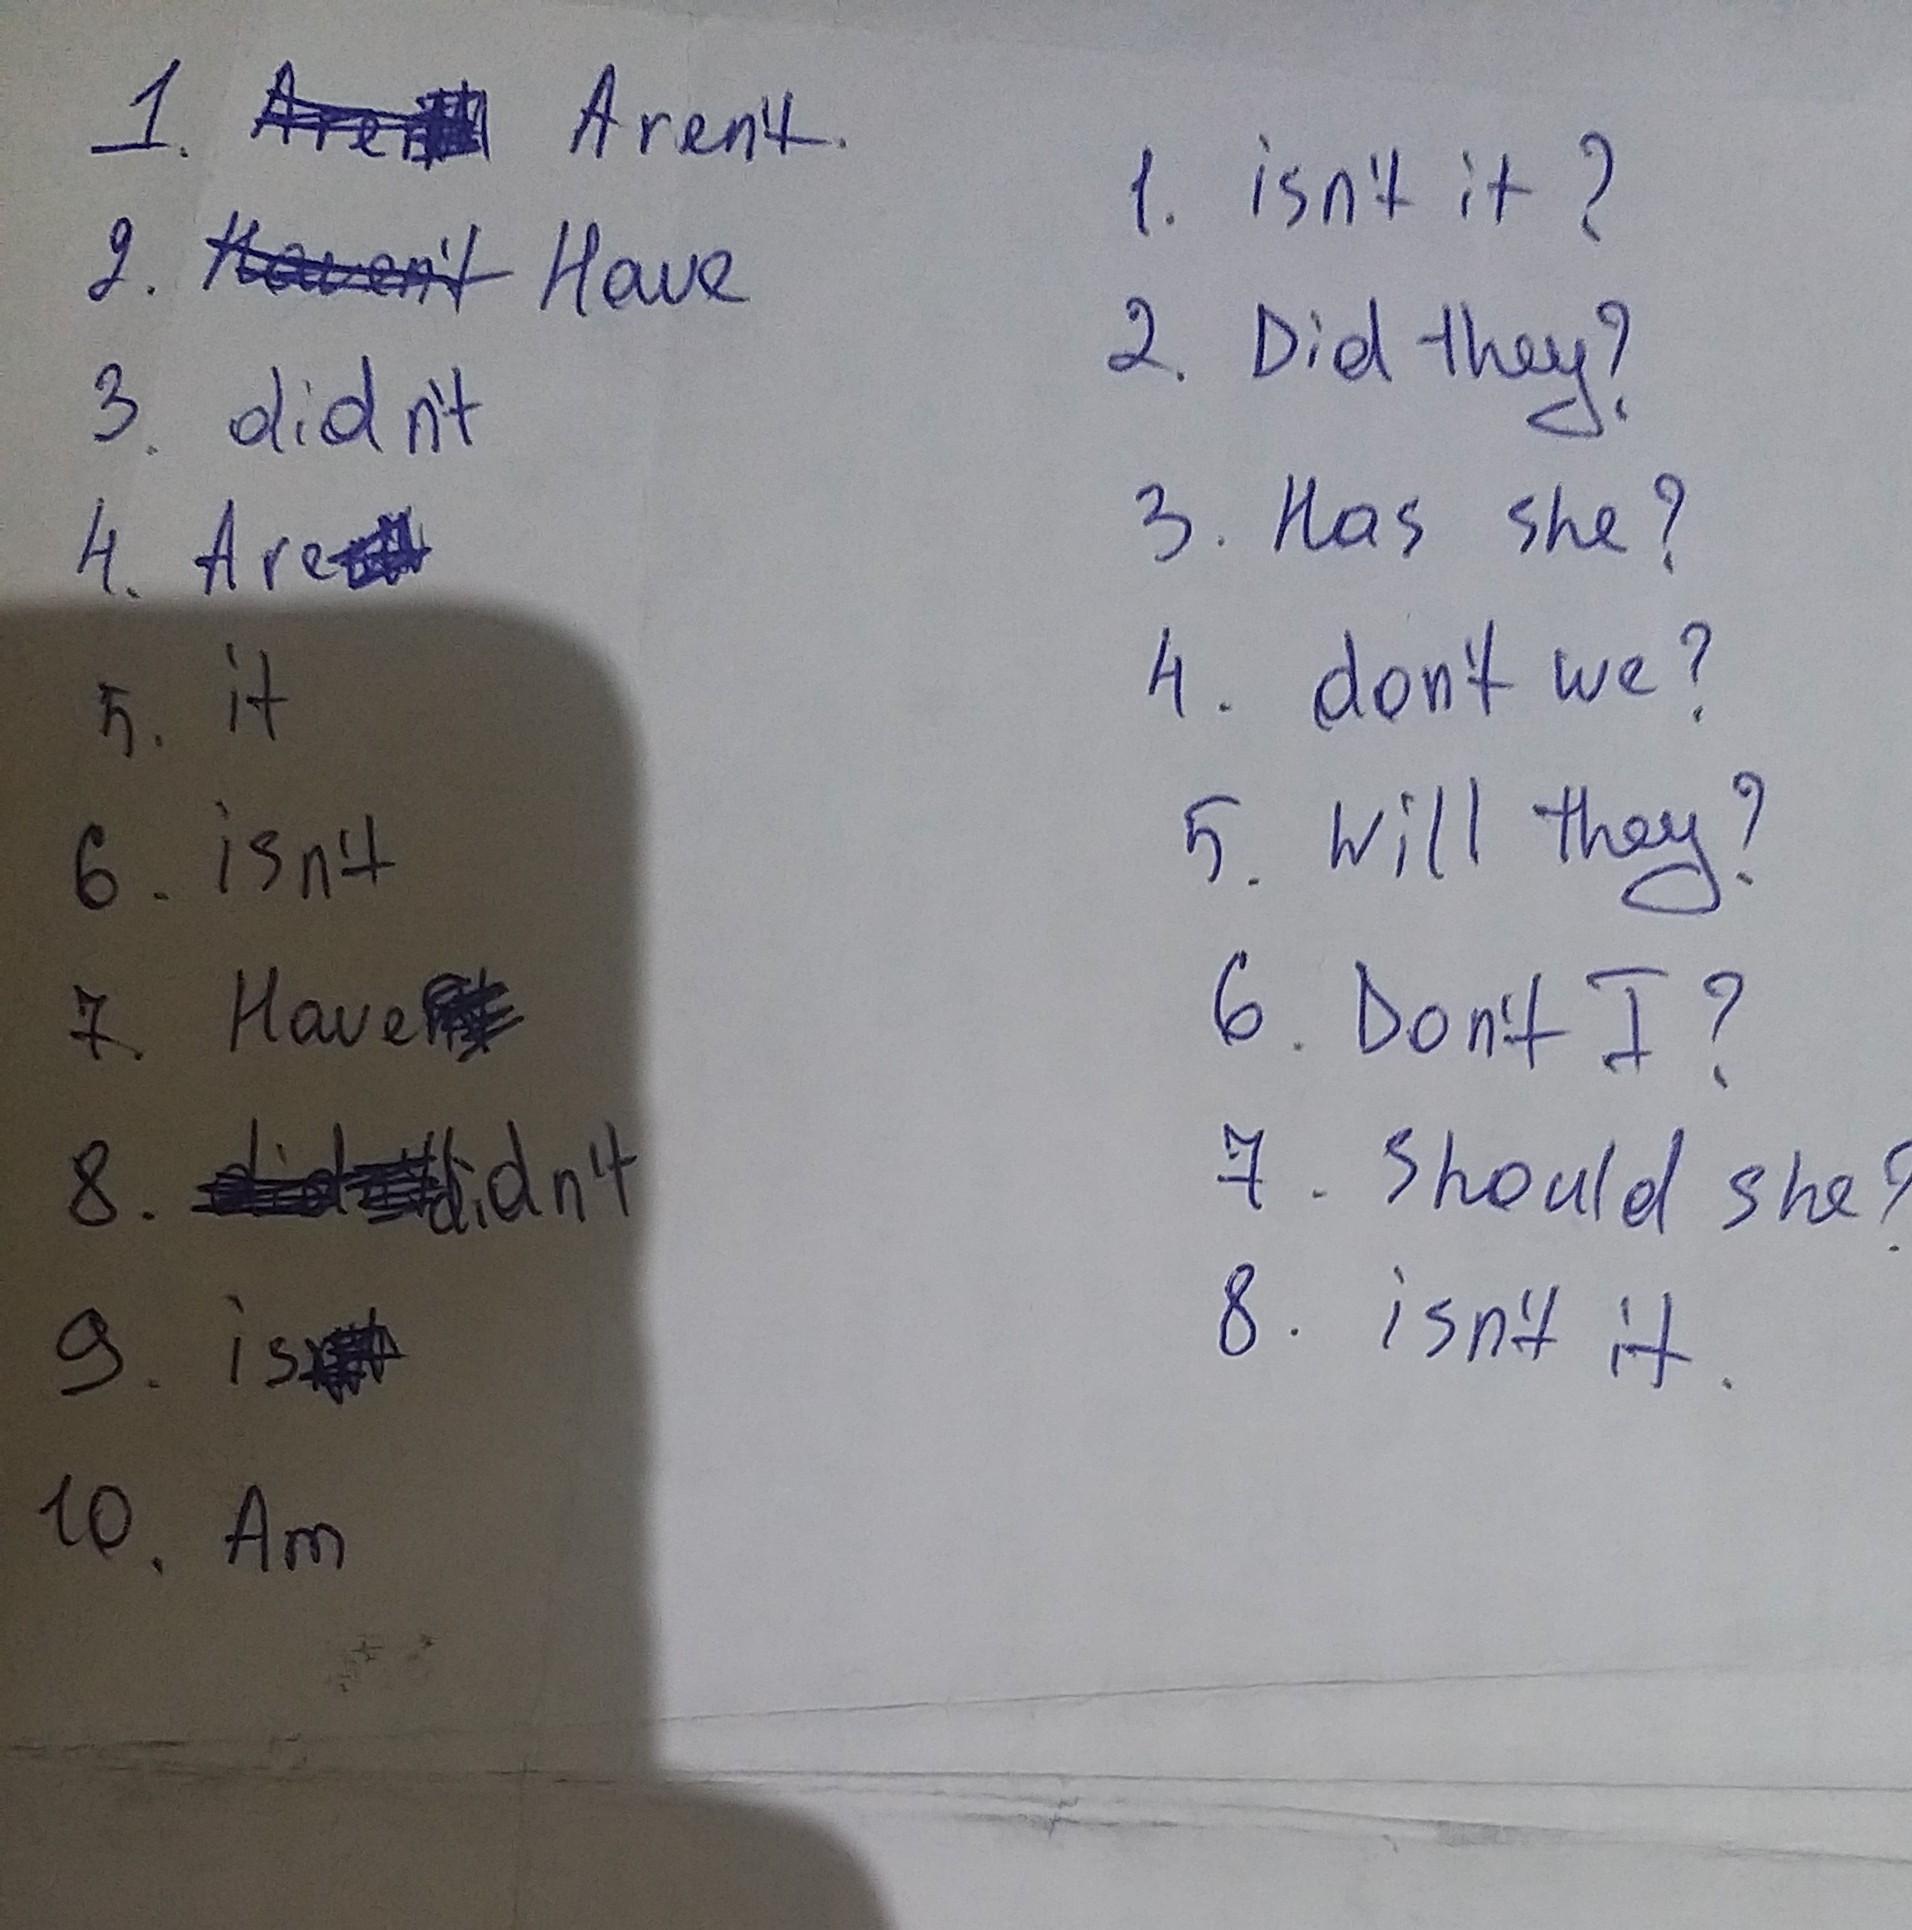 1. Aren't.
2. Haven't Have
3. didn't
4. Are
5. it
6. isn't
7. Have
8. didn't
9. is
10. Am
1. isn't it?
2. Did they?
3. Has she?
4. don't we?
5. Will they?
6. Don't I?
7. Should she?
8. isn't it.